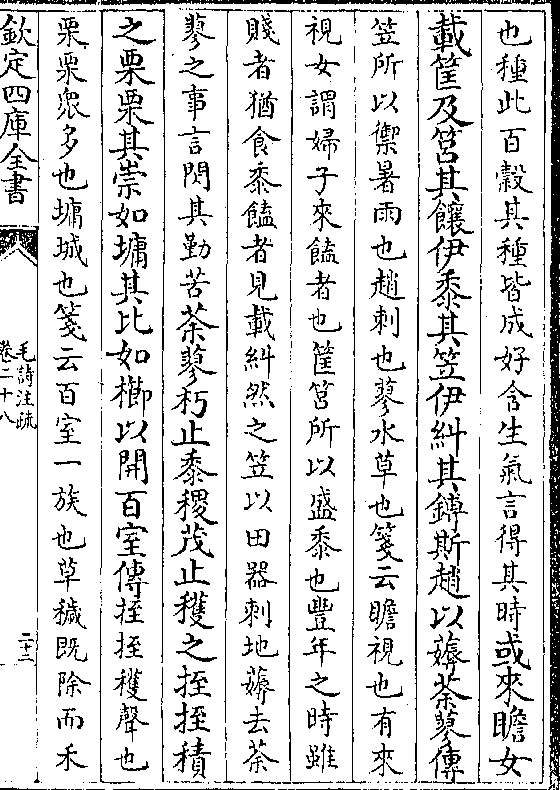 也種此百穀其種皆成好含生氣言得其時或來瞻女
載筐及筥其饟伊黍其笠伊糾其鎛斯趙以薅荼蓼傳
笠所以禦暑雨也趙刺也蓼水草也箋云瞻視也有來
視女謂婦子來饁者也筐筥所以盛黍也豐年之時雖
賤者猶食黍饁者見載糾然之笠以田器刺地薅去荼
蓼之事言閔其勤苦荼蓼朽止黍稷茂止穫之挃挃積
之栗栗其崇如墉其比如櫛以開百室傳挃挃穫聲也
栗栗眾多也墉城也箋云百室一族也草穢既除而禾
欽定四庫全書
毛詩注疏
卷二十八
二十二